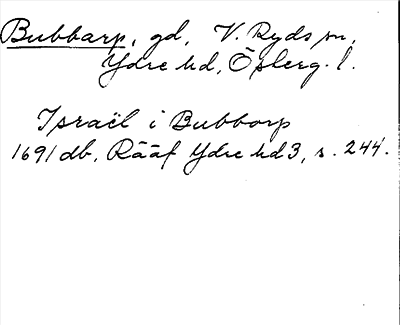 Bubbarp, gd, V. Ryds sn,
Ydre hd, Öslerg. l.
Israël i Bubborp
1691 db, Rääf Ydre hd 3, s. 244.